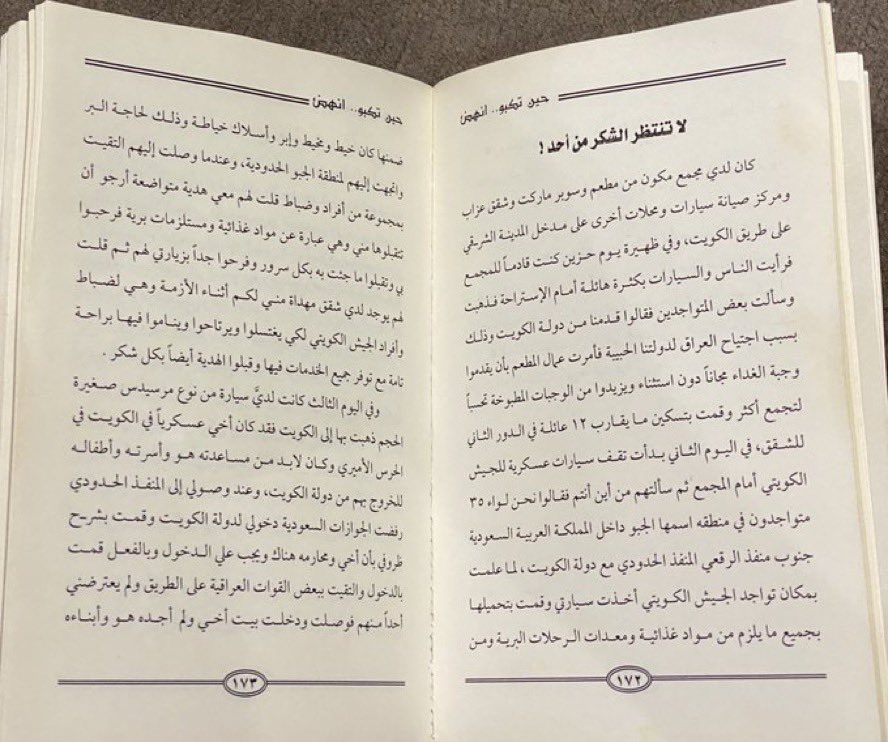 حين تكبو.. انهض
لا تنتظر الشكر من أحد !
كان لدي مجمع مكون من مطعم وسوبر ماركت وشقق عزاب
ومركز صيانة سيارات ومحلات أخرى على مدخل المدينة الشرقي
على طريق الكويت، وفي ظهيرة يوم حزين كنت قادماً للمجمع
فرأيت الناس والسيارات بكثرة هائلة أمام الإستراحة فذهبت
وسألت بعض المتواجدين فقالوا قدمنا من دولة الكويت وذلك
بسبب اجتياح العراق لدولتنا الحبيبة فأمرت عمال المطعم بأن يقدموا
وجبة الغداء مجاناً دون استثناء ويزيدوا من الوجبات المطبوخة تحسباً
لتجمع أكثر وقمت بتسكين ما يقارب ١٢ عائلة في الدور الثاني
للشقق، في اليوم الثاني بدأت تقف سيارات عسكرية للجيش
الكويتي أمام المجمع ثم سألتهم من أين أنتم فقالوا نحن لواء ٣٥
متواجدون في منطقه اسمها الجبو داخل المملكة العربية السعودية
جنوب منفذ الرقعي المنفذ الحدودي مع دولة الكويت، لما علمت
بمكان تواجد الجيش الكويتي أخذت سيارتي وقمت بتحميلها
بجميع ما يلزم من مواد غذائية ومعدات الرحلات البرية ومن
١٧٢
حين تكبو.. انهض
ضمنها كان خيط ومخيط وإبر وأسلاك خياطة وذلك لحاجة البر
واتجهت إليهم لمنطقة الجبو الحدودية، وعندما وصلت إليهم التقيت
بمجموعة من أفراد وضباط قلت لهم معي هدية متواضعة أرجو أن
تتقبلوها مني وهي عبارة عن مواد غذائية ومستلزمات برية فرحبوا
بي وتقبلوا ما جئت به بكل سرور وفرحوا جداً بزيارتي لهم ثم قلت
لهم يوجد لدي شقق مهداة مني لكم أثناء الأزمة وهي لضباط
وأفراد الجيش الكويتي لكي يغتسلوا ويرتاحوا ويناموا فيها براحة
تامة مع توفر جميع الخدمات فيها وقبلوا الهدية أيضاً بكل شكر .
وفي اليوم الثالث كانت لديَّ سيارة من نوع مرسيدس صغيرة
الحجم ذهبت بها إلى الكويت فقد كان أخي عسكرياً في الكويت في
الحرس الأميري وكان لابد من مساعدته هو وأسرته وأطفاله
للخروج بهم من دولة الكويت، وعند وصولي إلى المنفذ الحدودي
رفضت الجوازات السعودية دخولي لدولة الكويت وقمت بشرح
ظروفي بأن أخي ومحارمه هناك ويجب علي الدخول وبالفعل قمت
بالدخول والتقيت ببعض القوات العراقية على الطريق ولم يعترضني
أحداً منهم فوصلت ودخلت بيت أخي ولم أجده هو وأبناءه
١٧٣